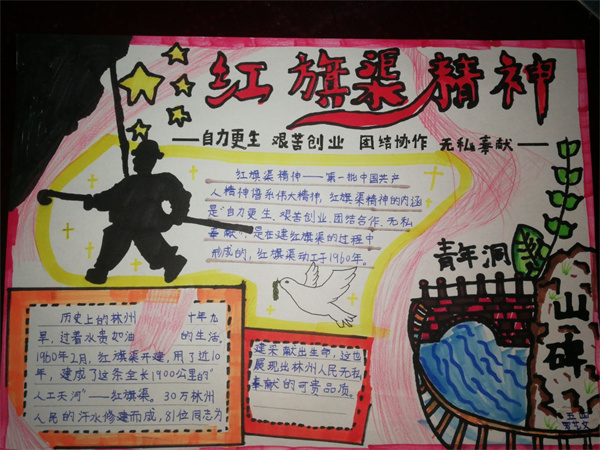 红旗渠精神
——自力更生 艰苦创业 团结协作 无私奉献——
红旗渠精神——第一批中国共产
人精神谱系伟大精神，红旗渠精神的内涵
是“自力更生、艰苦创业、团结合作、无私
奉献”，是在建红旗渠的过程中
形成的，红旗渠动工于1960年。
青年洞
山碑
历史上的林州 十年九
旱，过着水贵如油 的生活。
1960年2月，红旗渠开建，用了近10
年，建成了这条全长1900公里的“
人工天河”——红旗渠。30万林州
人民的汗水修建而成，81位同志为
建渠献出生命，这也
展现出林州人民无私
奉献的可贵品质。
五四